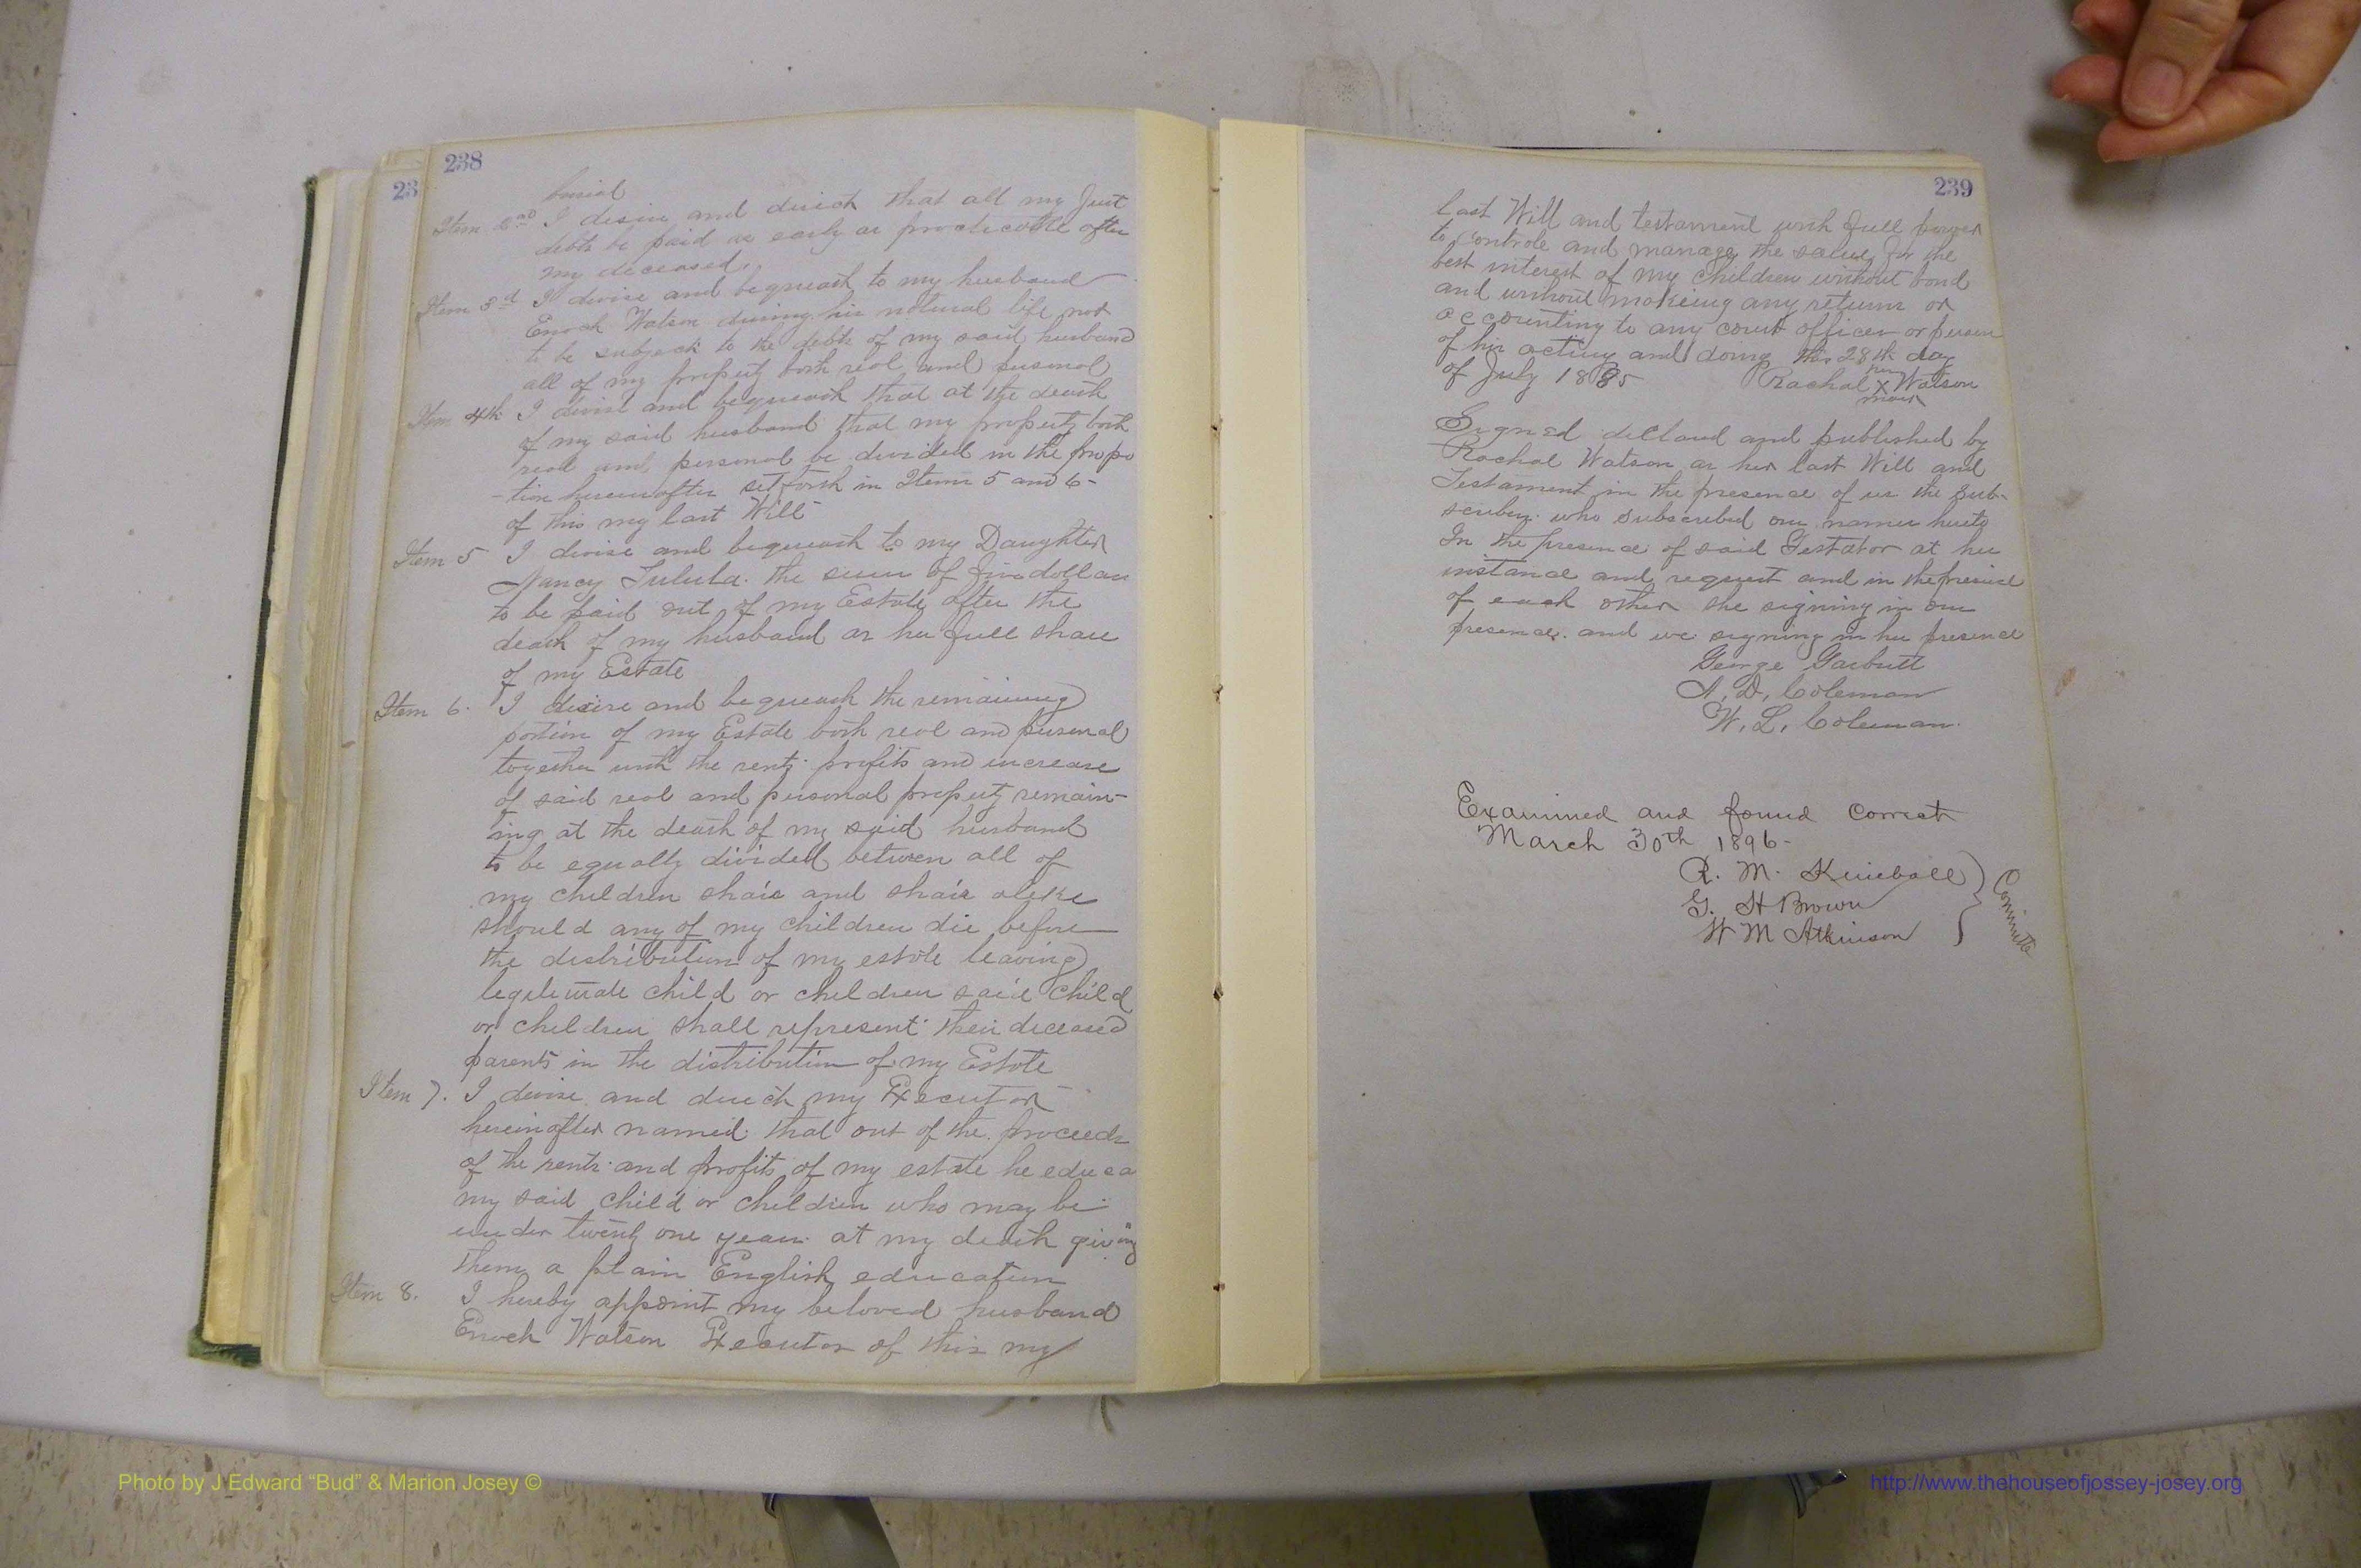 238
23
burial
Item 2nd I desire and direct that all my Just
debts be paid as early as practicable after
my deceased.
Item 3d I devise and bequeath to my husband
Enoch Watson during his natural life not
to be subject to the debts of my said husband
all of my property both real and personal
Item 4th I devise and bequeath that at the death
of my said husband that my property both
real and personal be divided in the propo
-tion hereinafter set forth in Items 5 and 6-
of this my last Will-
Item 5 I devise and bequeath to my Daughter
Nancy the sum of five dollars
to be paid out of my Estate after the
death of my husband as her full share
of my Estate
Item 6. I desire and bequeath the remaining
portion of my Estate both real and personal
together with the rents profits and increase
of said real and personal property remain-
ing at the death of my said husband
to be equally divided between all of
my children share and share alike
should any of my children die before
the distribution of my estate leaving
legitimate child or children said child
or children shall represent their deceased
parents in the distribution of my Estate
Item 7. I devise and direct my Executor
hereinafter named that out of the proceeds
of the rents and profits of my estate he educa
my said child or children who may be
under twenty one years at my death giving
them a plain English education
Item 8. I hereby appoint my beloved husband
Enoch Watson Executor of this my
239
last Will and testament with full power
to controle and manage the same for the
best interest of my children without bond
and without making any returns or
accounting to any court officer or person
of his acting and doing this 28th day
of July 1885 Rachal her X mark Watson
Signed declared and published by
Rachal Watson as her last Will and
Testament in the presence of us the sub-
scribers who subscribed our names hereto
In the presence of said Testator at her
instance and request and in the presence
of each other she signing in our
presence and we signing in her presence
George Garbutt
A. D. Coleman
W. L. Coleman.
Examined and found correct
March 30th 1896-
R. M. Kimball
G. H Brown
W M Atkinson
Committe
Photo by J Edward “Bud” & Marion Josey ©
http://www.thehouseofjossey-josey.org